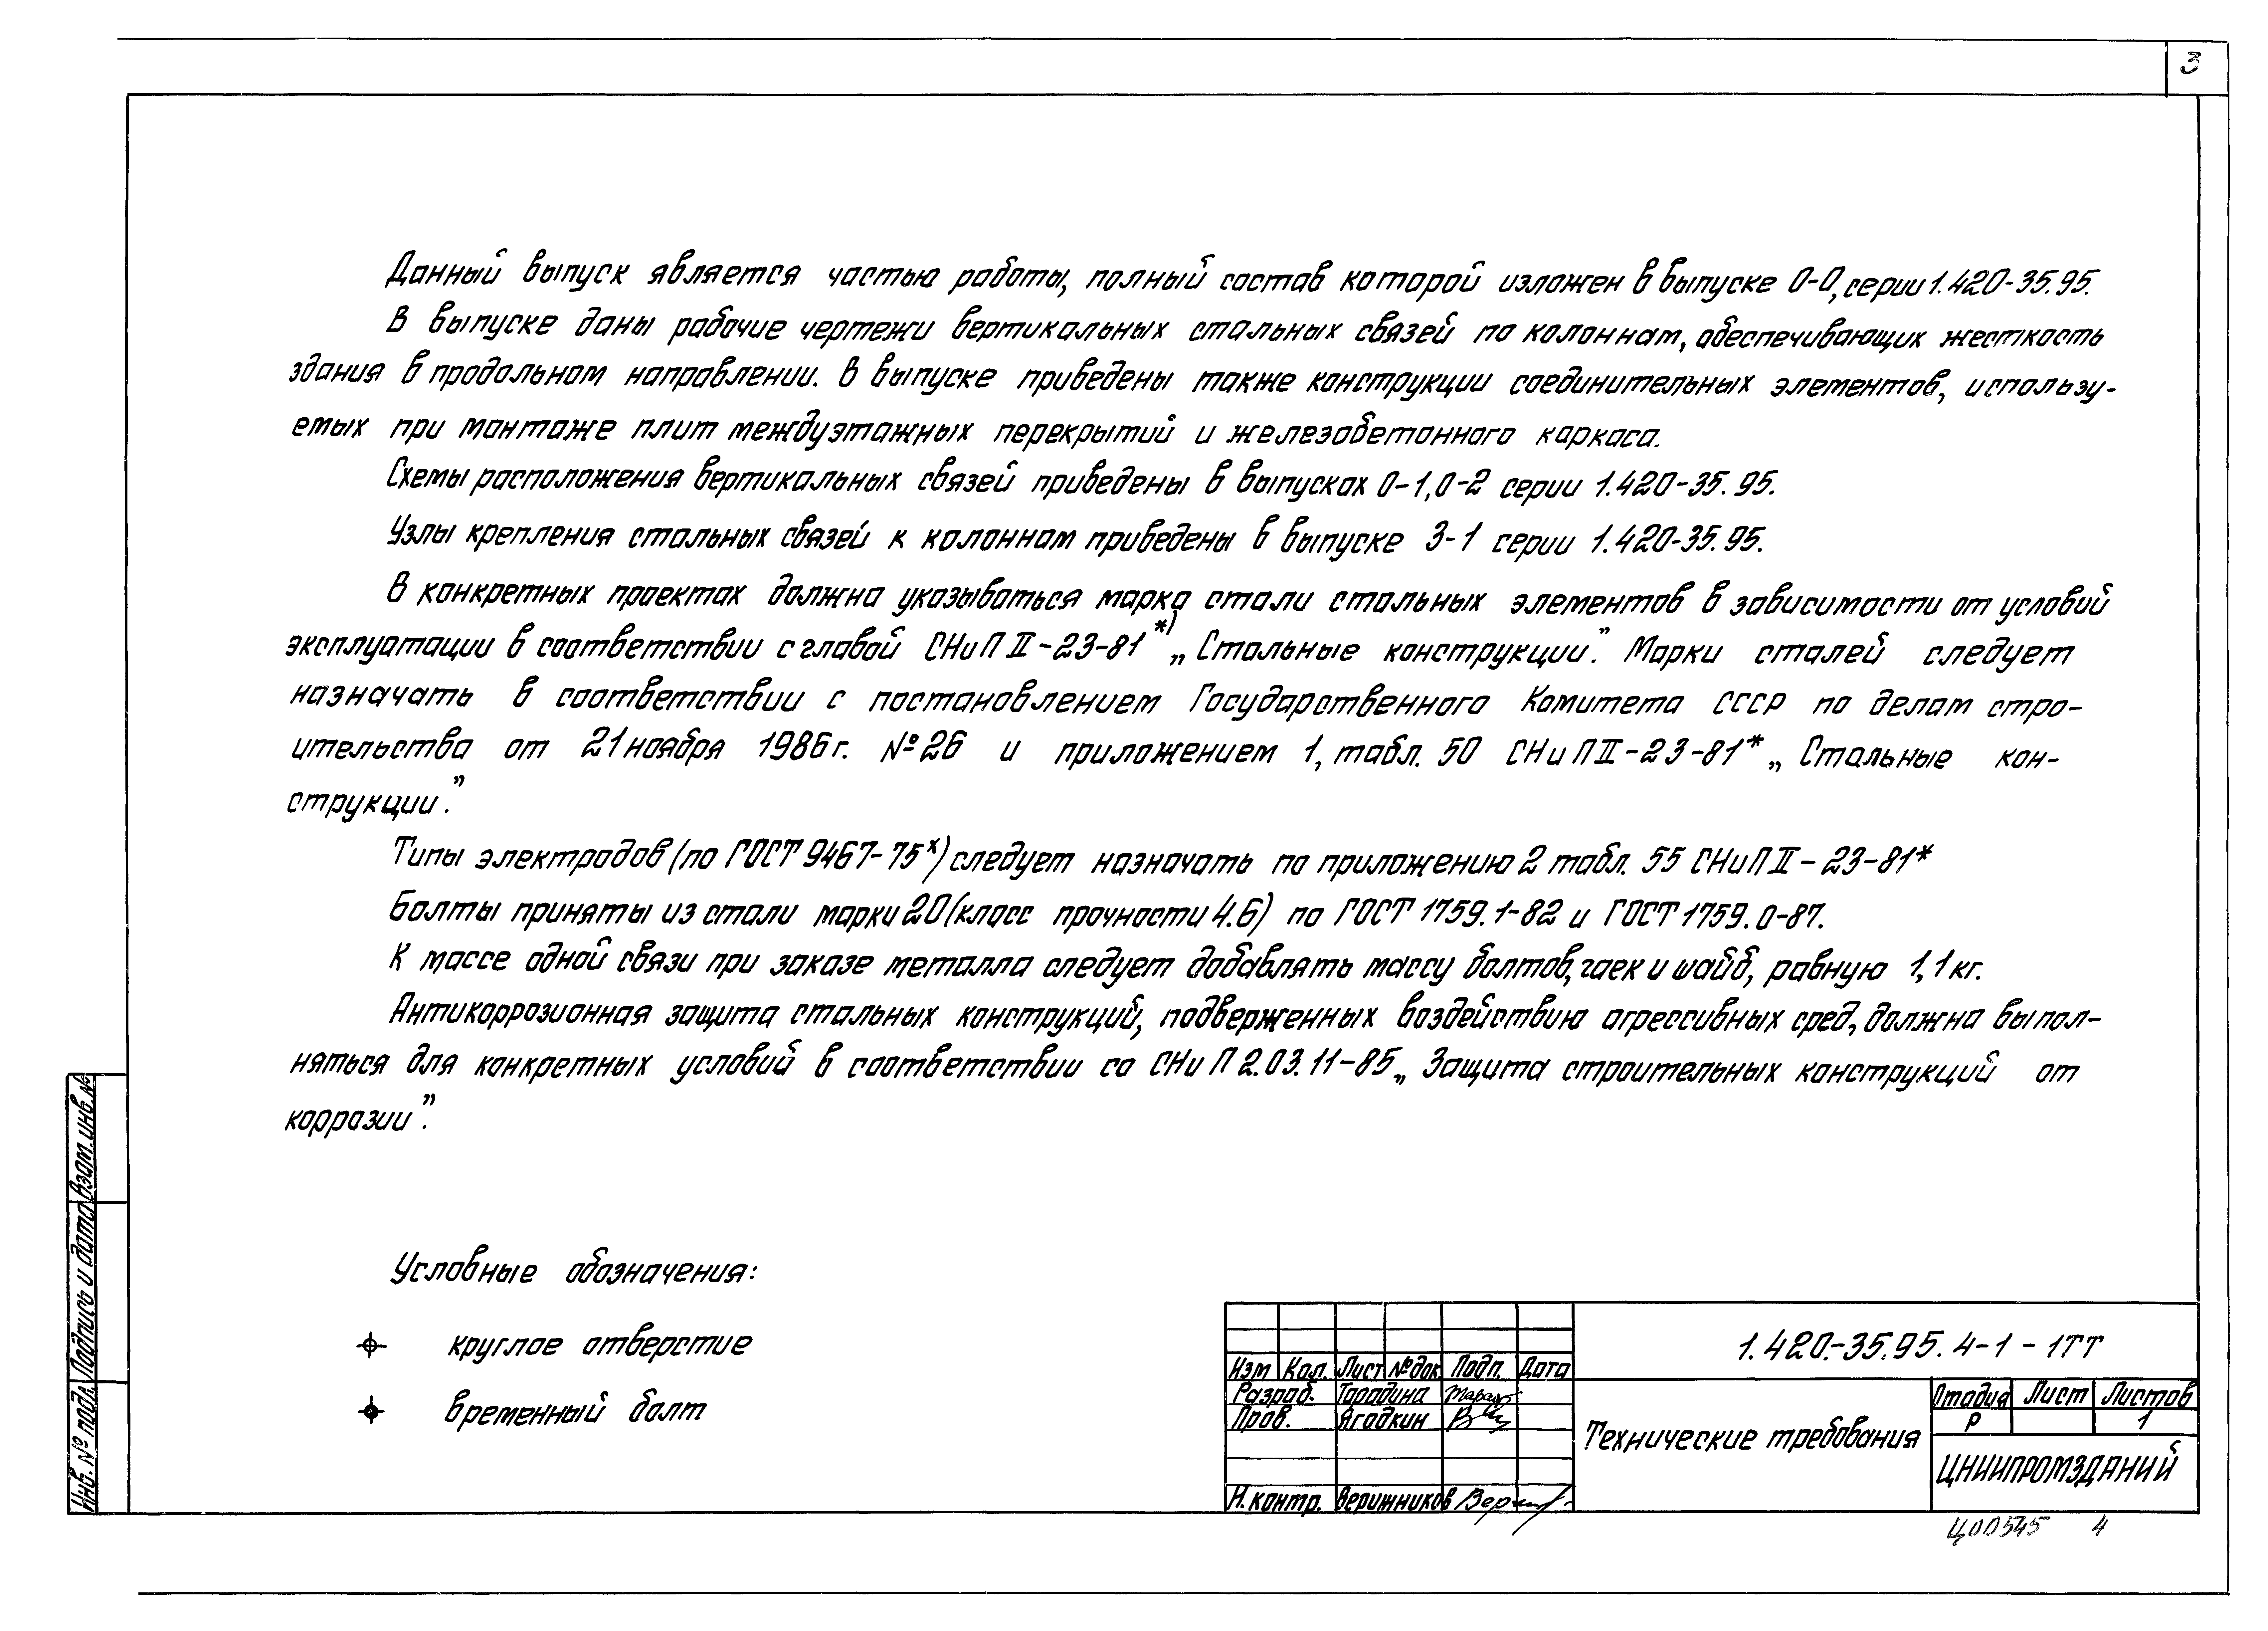 3
Данный выпуск является частью работы, полный состав которой изложен в выпуске 0-0, серии 1.420-35.95.
В выпуске даны рабочие чертежи вертикальных стальных связей по колоннам, обеспечивающих жесткость
здания в продольном направлении. В выпуске приведены также конструкции соединительных элементов, использу-
емых при монтаже плит междуэтажных перекрытий и железобетонного каркаса.
Схемы расположения вертикальных связей приведены в выпусках 0-1, 0-2 серии 1.420-35.95.
Узлы крепления стальных связей к колоннам приведены в выпуске 3-1 серии 1.420-35.95.
В конкретных проектах должна указываться марка стали стальных элементов в зависимости от условий
эксплуатации в соответствии с главой СНиП II-23-81*) „Стальные конструкции”. Марки сталей следует
назначать в соответствии с постановлением Государственного Комитета СССР по делам стро-
ительства от 21 ноября 1986г. №26 и приложением 1, табл. 50 СНиП II-23-81* „Стальные кон-
струкции”.
Типы электродов (по ГОСТ 9467-75х) следует назначать по приложению 2 табл. 55 СНиП II-23-81*
Болты приняты из стали марки 20 (класс прочности 4.6) по ГОСТ 1759.1-82 и ГОСТ 1759.0-87.
К массе одной связи при заказе металла следует добавлять массу болтов, гаек и шайб, равную 1,1 кг.
Антикоррозионная защита стальных конструкций, подверженных воздействию агрессивных сред, должна выпол-
няться для конкретных условий в соответствии со СНиП 2.03.11-85 „Защита строительных конструкций от
коррозии”.
Условные обозначения:
круглое отверстие
временный болт
Инв. № подл. Подпись и дата Взам. инв. №
Изм Кол. Лист №док. Подп. Дата
Разраб. Тарадина
Пров. Ягодкин
Н. контр. Верижников
1.420-35.95.4-1-1ТТ
Технические требования
Стадия Лист Листов
Р 1
ЦНИИПРОМЗДАНИЙ
Ц00545 4